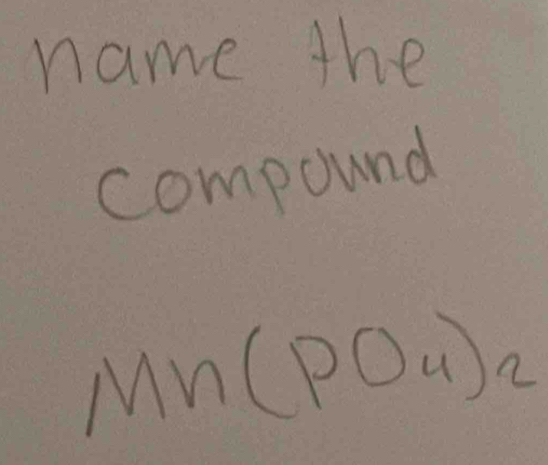 name the
compound
Mn(PO₄)₂